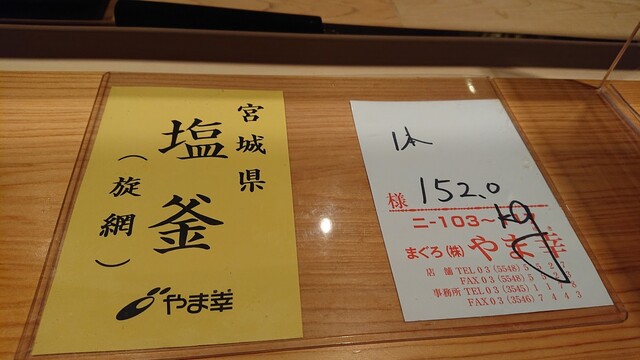 宮城県
塩釜
(旋網)
やま幸
1本
様 152.0
kg
ニ-103~
まぐろ(株)やま幸
店舗 TEL03(5548)5527
FAX03(5548)5
事務所 TEL03(3545)1178
FAX03(3546)7443